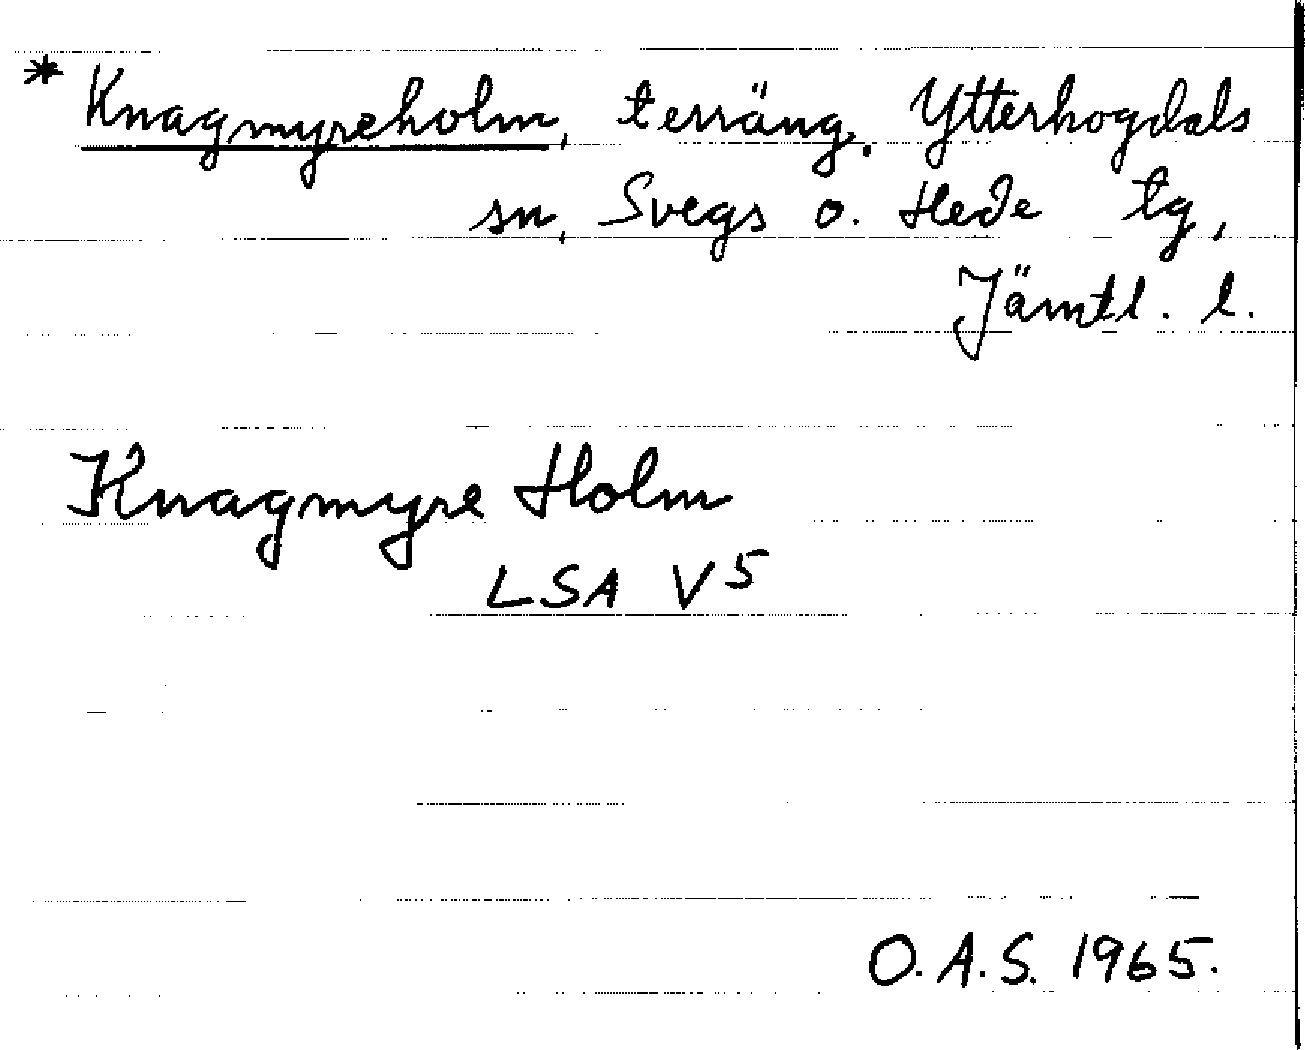 * Knagmyreholm, terräng. Ytterhogdals
sn, Svegs o. Hede tg,
Jämtl. l.
Knagmyre Holm
LSA V5
O.A.S. 1965.